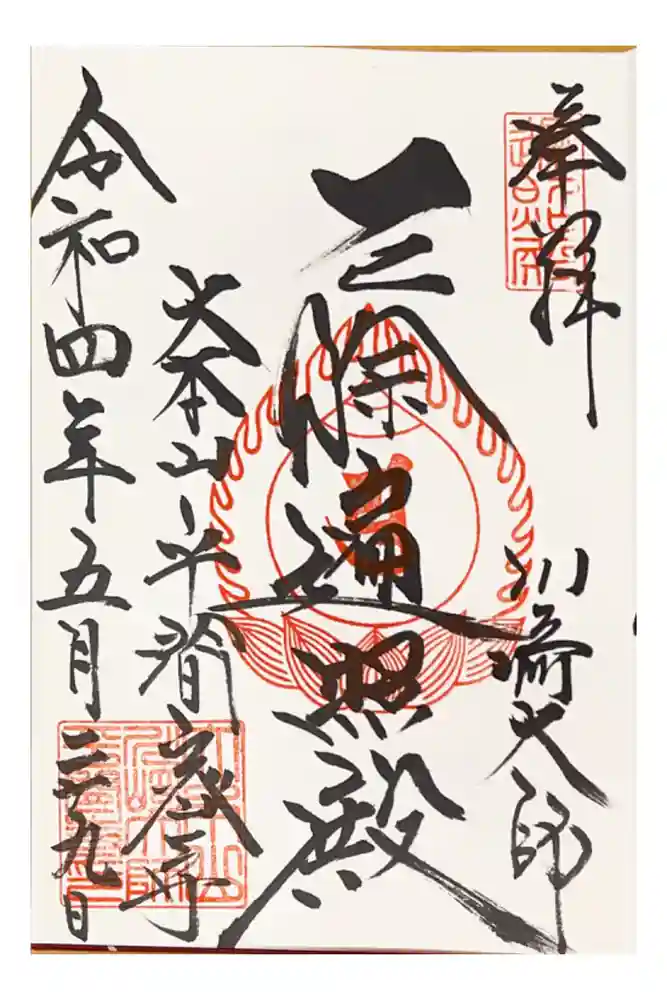 奉拝
川崎大師
厄除遍照殿
大本山平間寺
令和四年五月二十九日